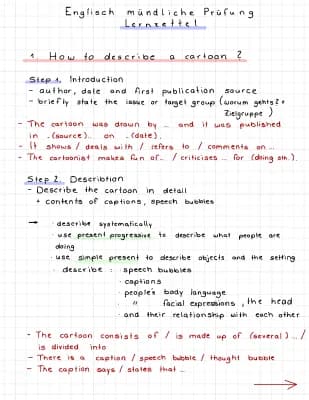 Englisch mündliche Prüfung
Lernzettel
1. How to describe a cartoon?
Step 1. Introduction
- author, date and first publication source
- briefly state the issue or target group (worum gehts? +
Zielgruppe)
- The cartoon was drawn by ... and it was published
in .(source).. on .(date).
- It shows / deals with / refers to / comments on ...
- The cartoonist makes fun of.../ criticises ... for (doing sth.).
Step 2. Describtion
- Describe the cartoon in detail
+ contents of captions, speech bubbles
→ · describe systematically
· use present progressive to describe what people are
doing
· use simple present to describe objects and the setting
· describe : · speech bubbles
· captions
· people's body language
· " facial expressions, the head
· and their relationship with each other
- The cartoon consists of / is made up of (several) ... /
is divided into
- There is a caption / speech bubble / thought bubble
- The caption says / states that ...